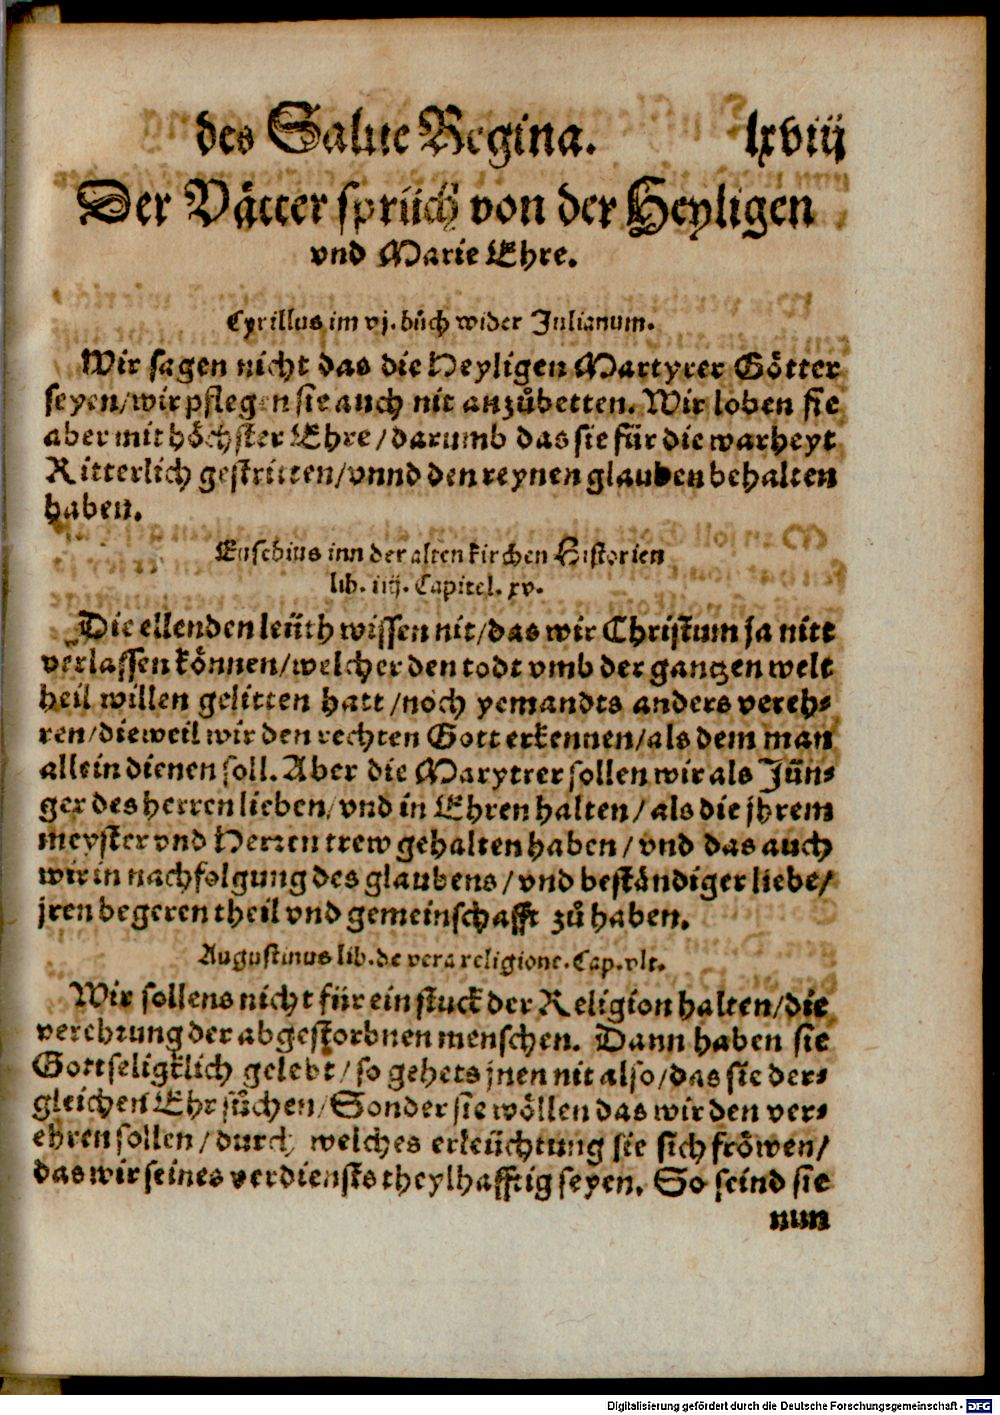 des Salue Regina. lxviij
Der Vätter sprüch von der Heyligen
vnd Marie Ehre.
Cyrillus im vj. bůch wider Julianum.
Wir sagen nicht das die Heyligen Martyrer Götter
seyen/wir pflegen sie auch nit anzůbetten. Wir loben sie
aber mit höchster Ehre/darumb das sie für die warheyt
Ritterlich gestritten/vnnd den reynen glauben behalten
haben.
Eusebius inn der alten kirchen Historien
lib. iiij. Capitel. xv.
Die ellenden leüth wissen nit/das wir Christum ja nitt
verlassen können/welcher den todt vmb der gantzen welt
heil willen gelitten hatt/noch yemandts anders vereh-
ren/dieweil wir den rechten Gott erkennen/als dem man
allein dienen soll. Aber die Marytrer sollen wir als Jün-
ger des herren lieben/vnd in Ehren halten/als die jhrem
meyster vnd Herren trew gehalten haben/vnd das auch
wir in nachfolgung des glaubens/vnd beständiger liebe/
jren begeren theil vnd gemeinschafft zů haben.
Augustinus lib. de vera religione. Cap. vlt.
Wir sollens nicht für ein stuck der Religion halten/die
verehrung der abgestorbnen menschen. Dann haben sie
Gottseligklich gelebt/so gehets jnen nit also/das sie der-
gleichen Ehr sůchen/Sonder sie wöllen das wir den ver-
ehren sollen/durch welches erleüchtung sie sich fröwen/
das wir seines verdiensts theylhafftig seyen. So seind sie
nun
Digitalisierung gefördert durch die Deutsche Forschungsgemeinschaft - DFG